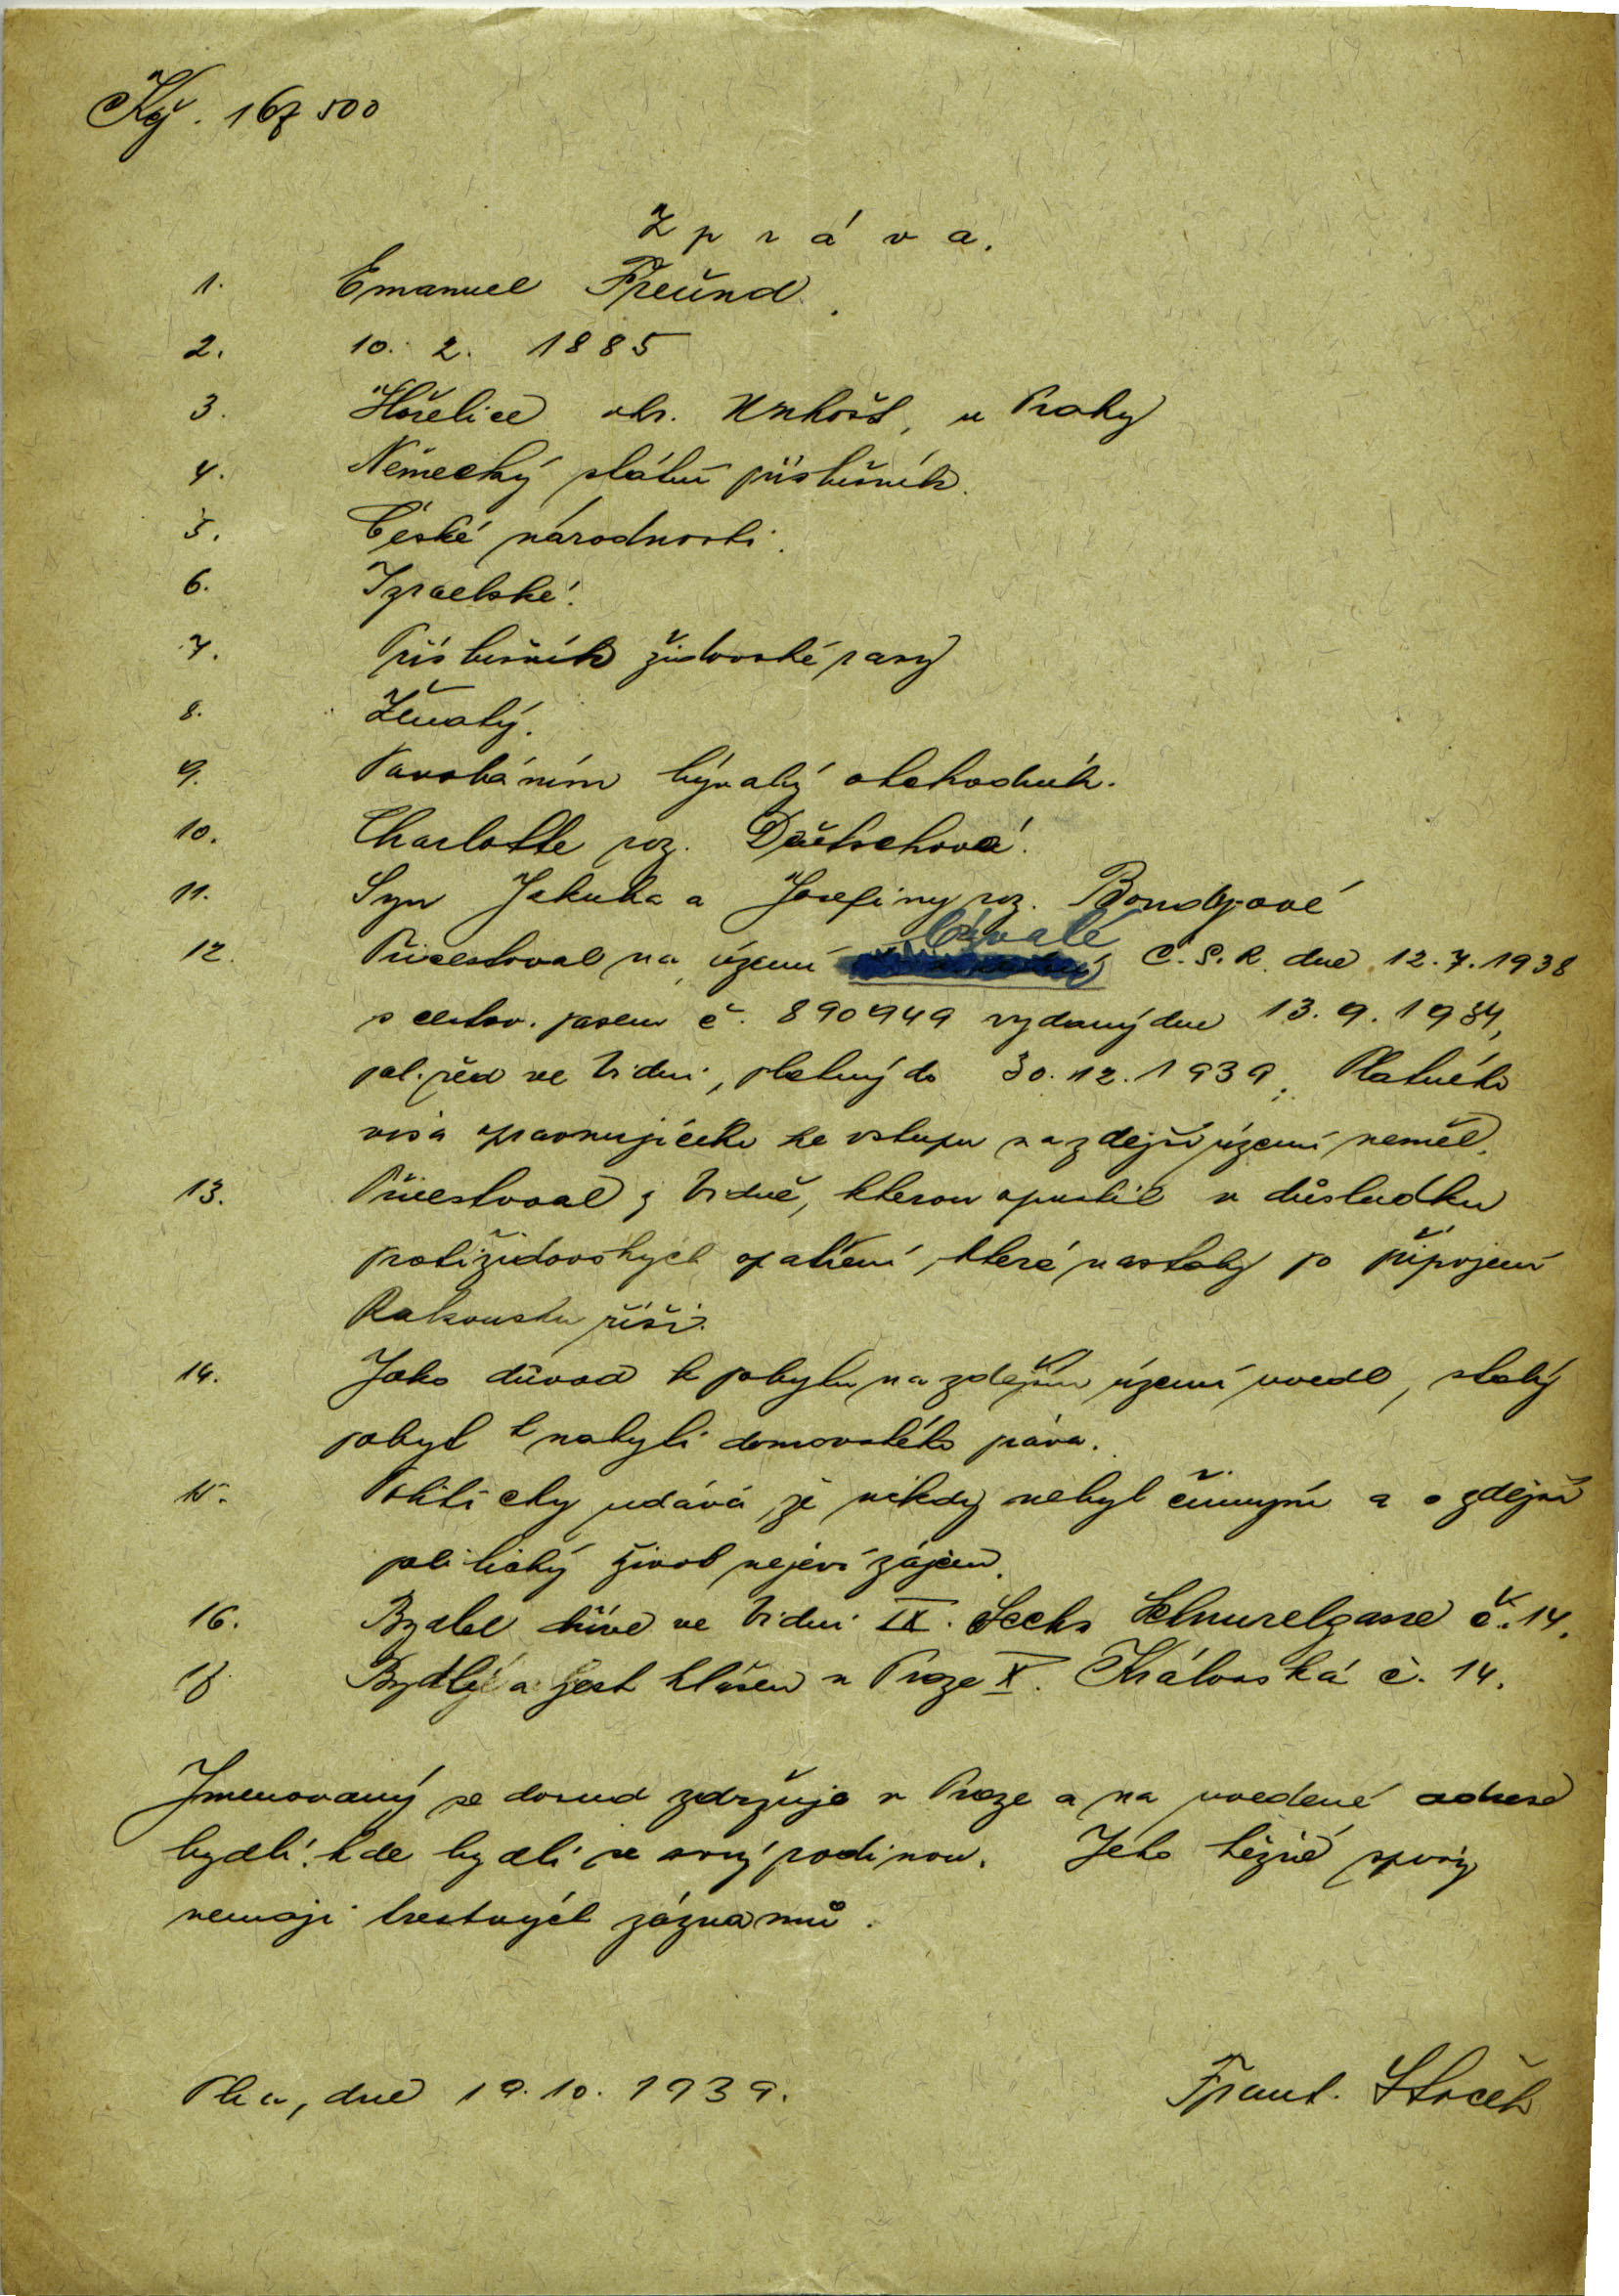 Kčj. 167 500
Zpráva.
1. Emanuel Freund.
2. 10. 2. 1885
3. Hořelice okr. Unhošť, u Prahy
4. Německý státní příslušník.
5. České národnosti.
6. Izraelské.
7. Příslušník židovské rasy
8. Ženatý.
9. Povoláním bývalý obchodník.
10. Charlotte roz. Deutschová.
11. Syn Jakuba a Josefiny roz. Bondyové
12. Přicestoval na území bývalé Č. S. R. dne 12. 7. 1938
s cestov. pasem č. 890949 vydaný dne 13. 9. 1934,
pol. řed ve Vídni, platný do 30. 12. 1939. Platného
visa opravnujícího ke vstupu na zdejší území neměl.
13. Přicestoval z Vídně, kterou opustil v důsledku
protižidovských opatření, které nastaly po připojení
Rakouska říši.
14. Jako důvod k pobytu na zdejším území uvedl, stálý
pobyt k nabytí domovského práva.
15. Politicky udává, že nikdy nebyl činným a o zdejší
politický život nejeví zájem.
16. Bydlel dříve ve Vídni IX. Sechs Schimmelgasse č. 14.
17. Bydlí a jest hlášen v Praze X. Královská č. 14.
Jmenovaný se dosud zdržuje v Praze a na uvedené adrese
bydlí, kde bydlí se svojí rodinou. Jeho zdejší spisy
nemají trestných záznamů.
Praha, dne 19. 10. 1939. Frant. Stoček